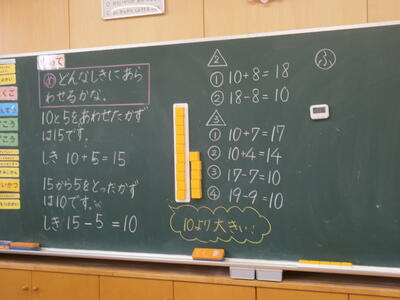 め どんなしきにあら
わせるかな。
10と5をあわせたかず
は15です。
しき 10+5=15
15から5をとったかず
は10です。
しき 15-5=10
2
① 10+8=18
② 18-8=10
3
① 10+7=17
② 10+4=14
③ 17-7=10
④ 19-9=10
10より大きい!
ふ